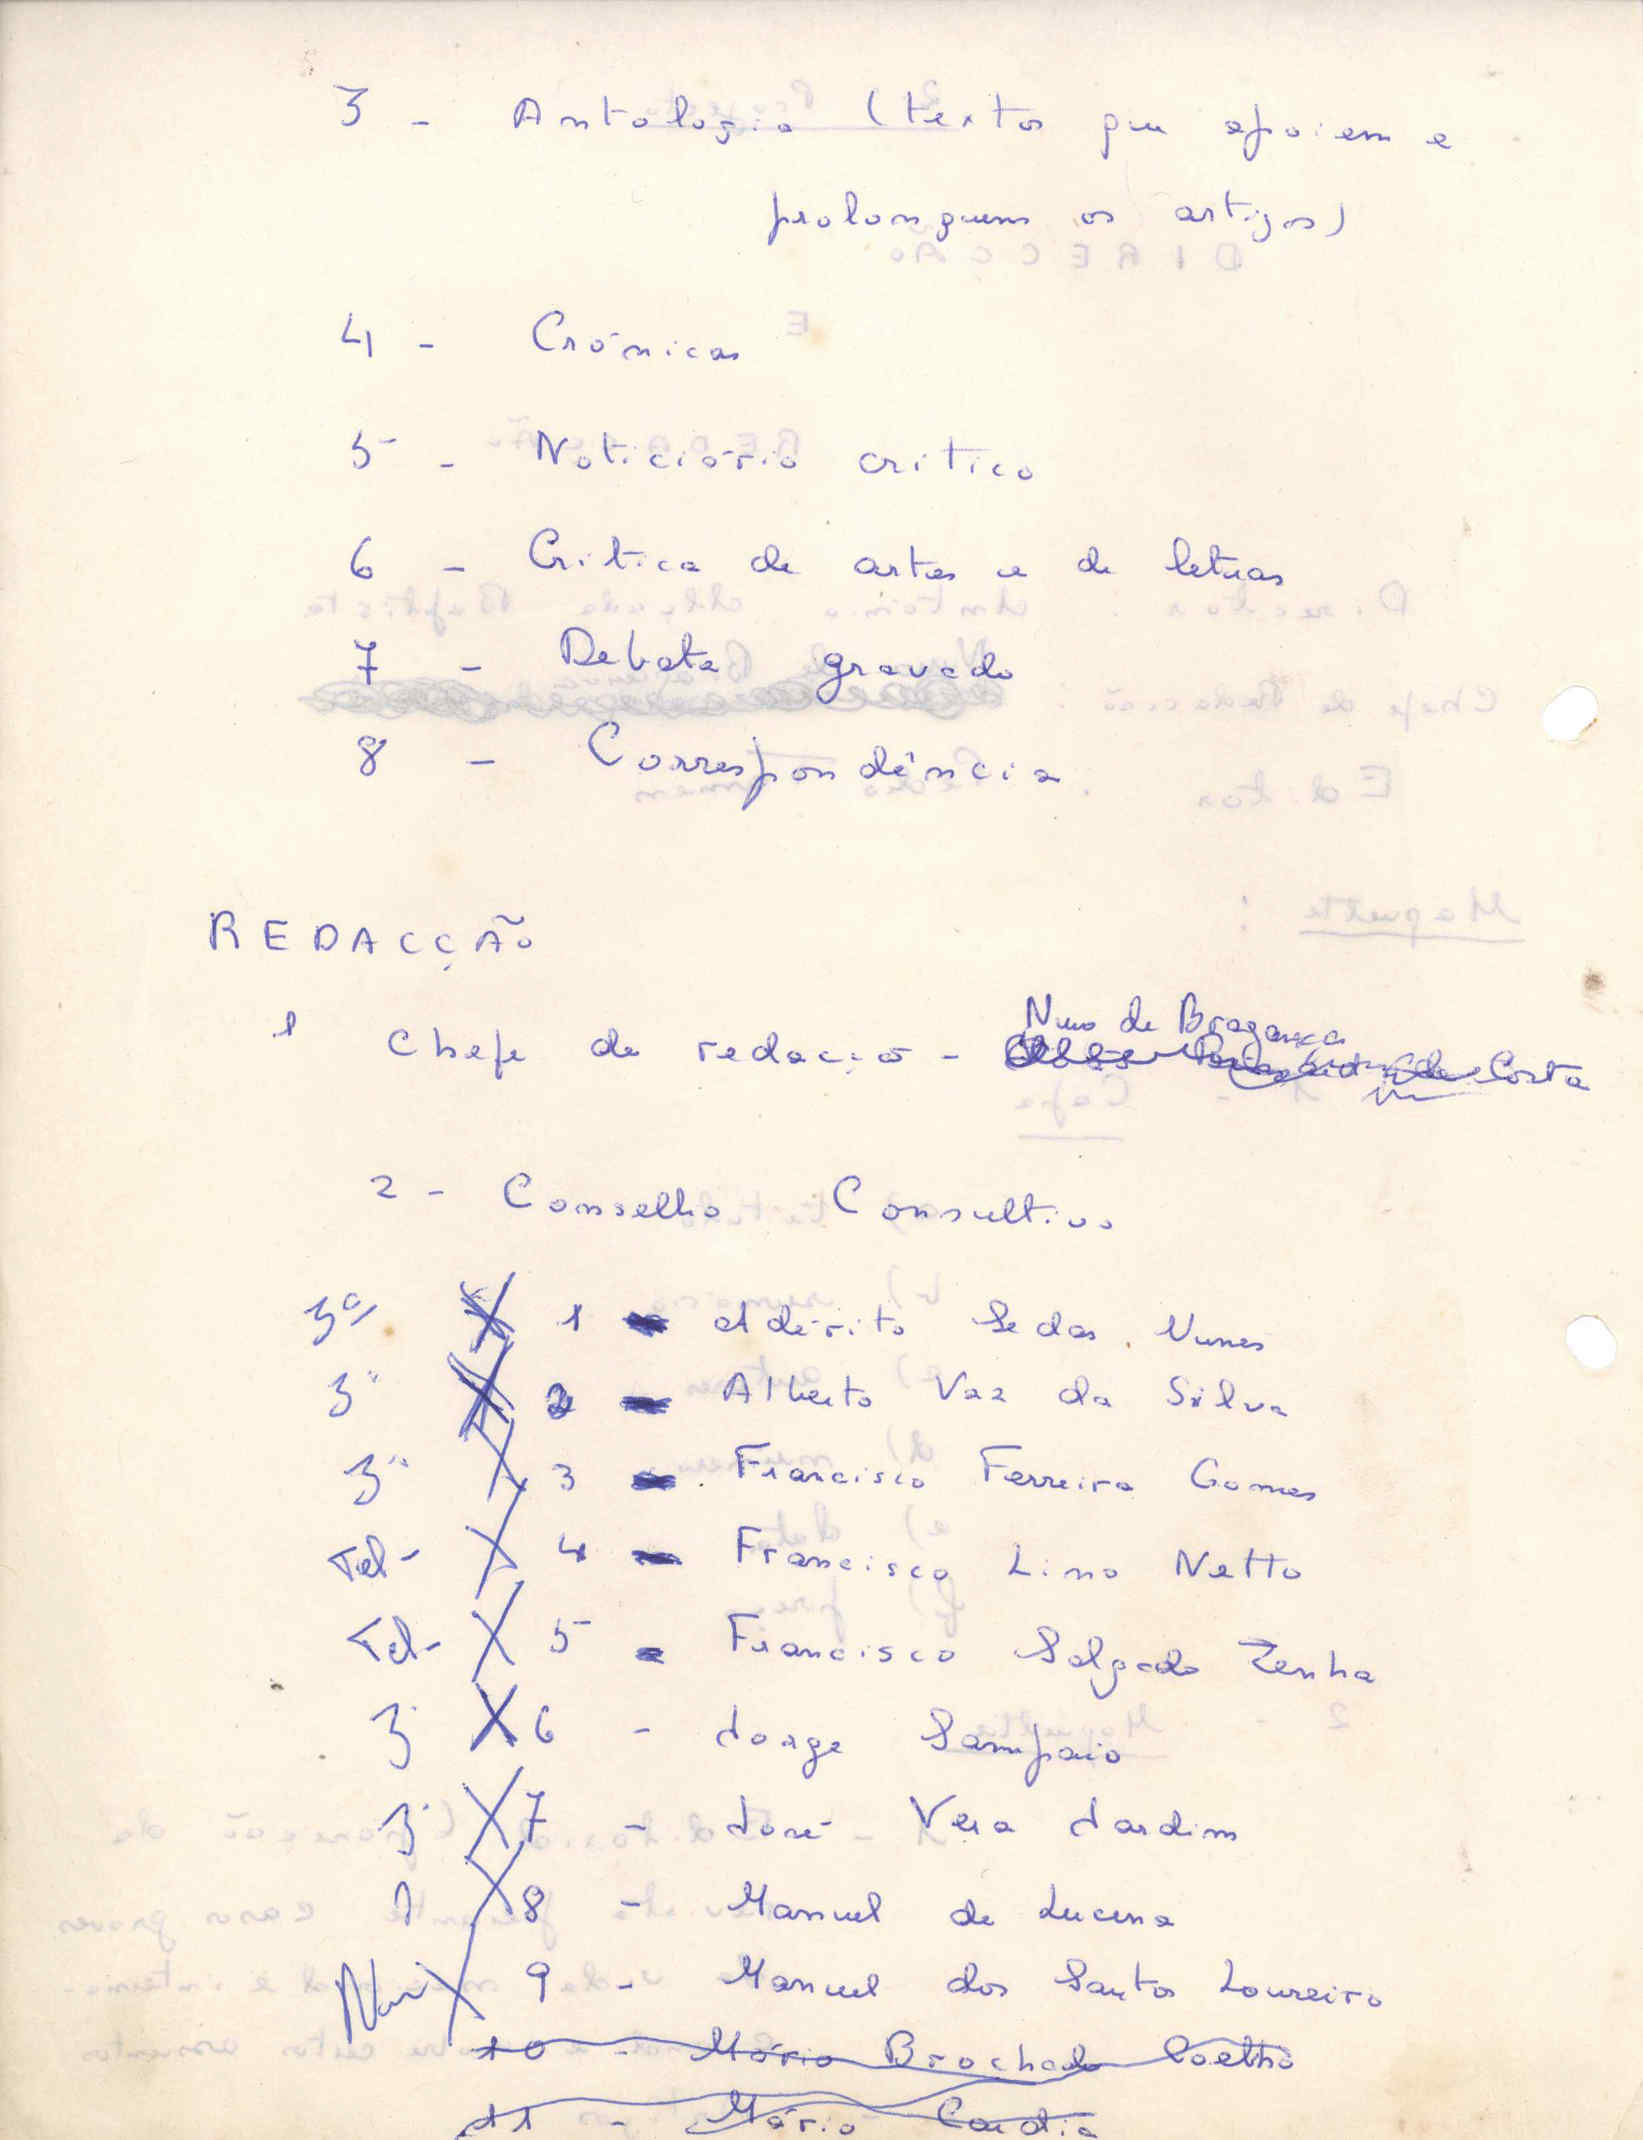 3 - Antologia (textos que apoiem e
prolonguem os artigos)
4 - Crónicas
5 - Noticiário crítico
6 - Crítica de artes e de letras
7 - Debate gravado
8 - Correspondência
REDACÇÃO
Nuno de Bragança
1 Chefe de redacção - Costa
2 - Conselho Consultivo
3ª X 1 - Adérito Sedas Nunes
3ª X 2 - Alberto Vaz da Silva
3ª X 3 - Francisco Ferreira Gomes
Tel- X 4 - Francisco Lino Netto
Tel- X 5 - Francisco Salgado Zenha
3 X 6 - Jorge Sampaio
3 X 7 - José Vera Jardim
X 8 - Manuel de Lucena
X 9 - Manuel dos Santos Loureiro
10 - Mário Brochado Coelho
11 - Mário Cardia